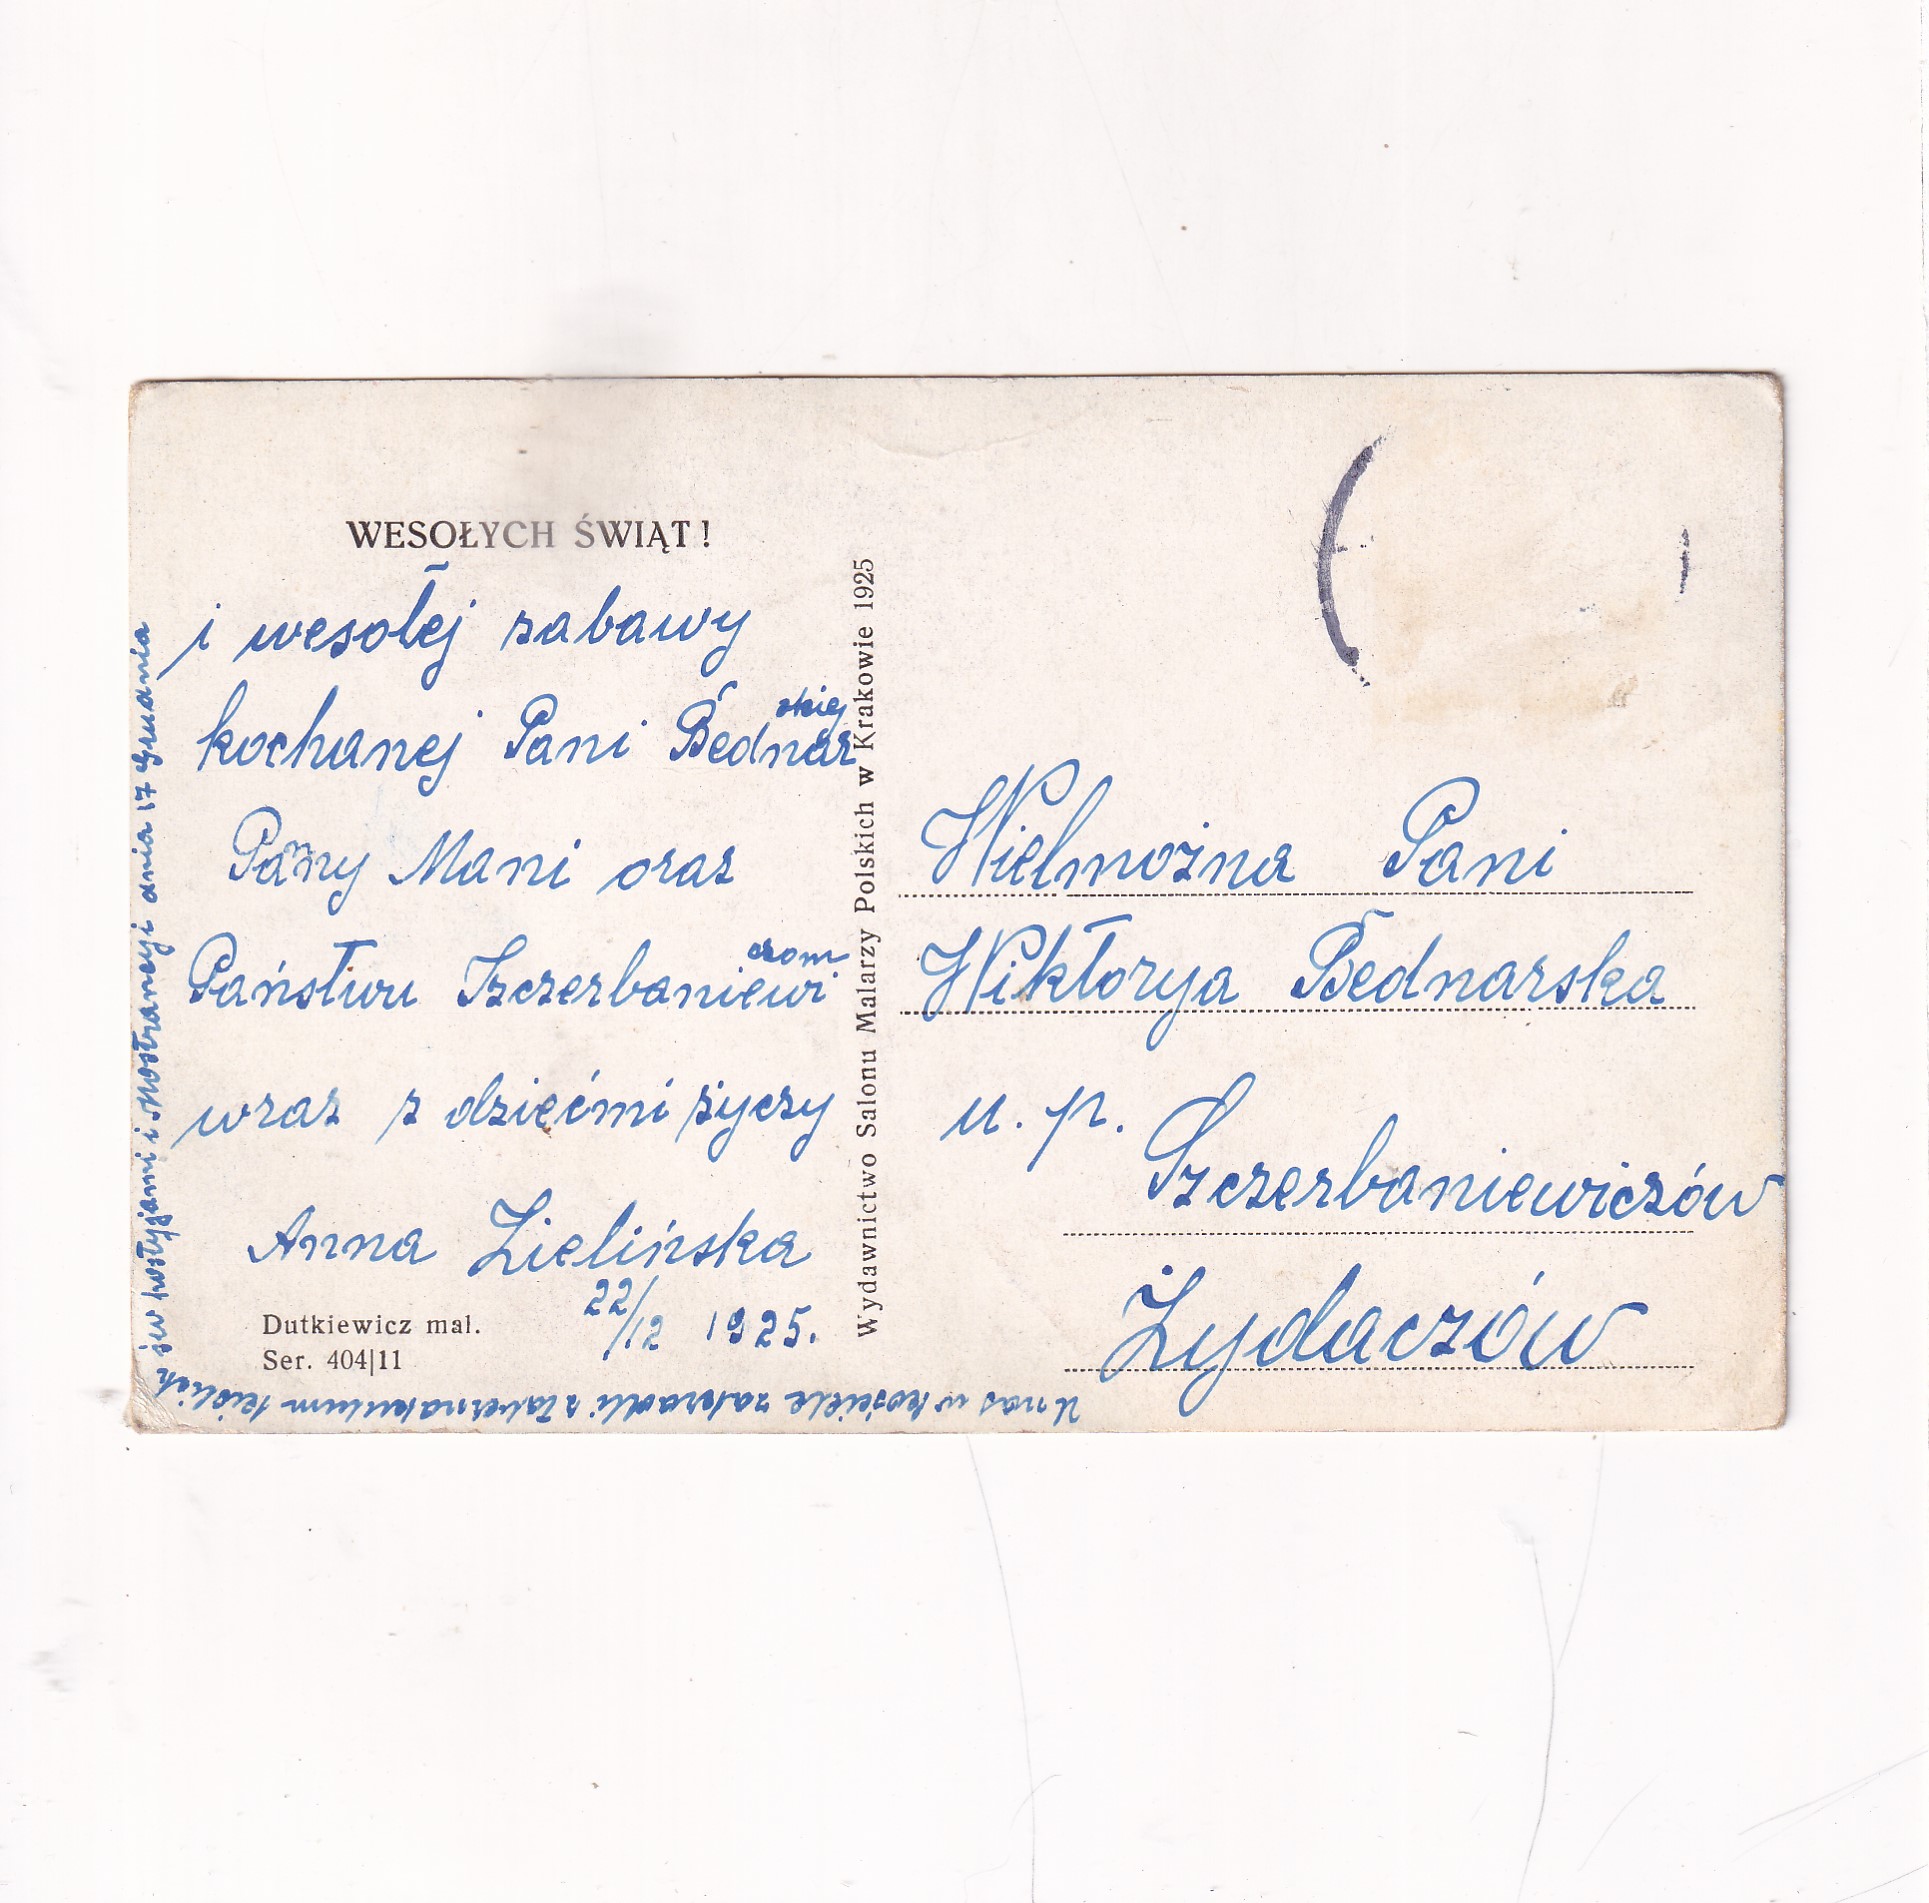 WESOŁYCH ŚWIĄT!
i wesołej zabawy
kochanej Pani Bednarskiej
Panny Mani oraz
Państwu Szczerbaniewiczom
wraz z dziećmi życzy
Anna Zielińska
22/12 1925.
Dutkiewicz mal.
Ser. 404|11
U nas w kościele zakradli z tabernakulum kielich
św hostyjami i Mostrancyi dnia 17 Grudnia
Wydawnictwo Salonu Malarzy Polskich w Krakowie 1925
Wielmożna Pani
Wiktorya Bednarska
u. p.
Szczerbaniewiczów
Żydaczów